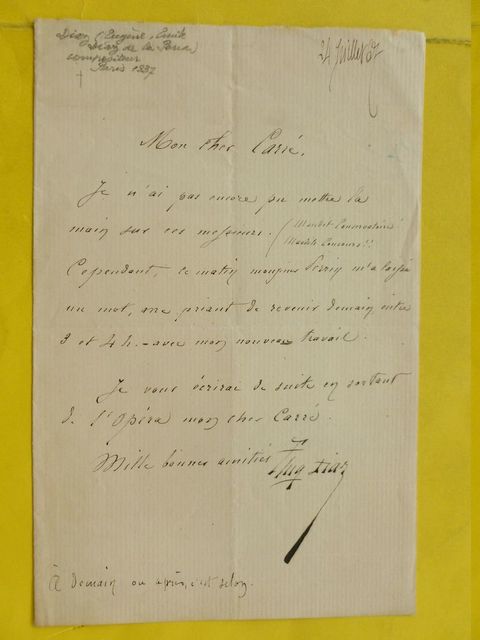 Diaz (Eugène, Emile
Diaz de la Pena)
compositeur
Paris 1837
†
24 Juillet
Mon cher Carré,
Je n'ai pas encore pu mettre la
main sur ces messieurs. (Maudit Conservatoire!
Maudits Concours!!
Cependant, ce matin Perrin m'a laissé
un mot, me priant de revenir demain entre
3 et 4 h. - avec mon nouveau travail.
Je vous écrirai de suite en sortant
de l'Opéra mon cher Carré.
Mille bonnes amitiés Eug Diaz
à Demain ou après, c'est selon.